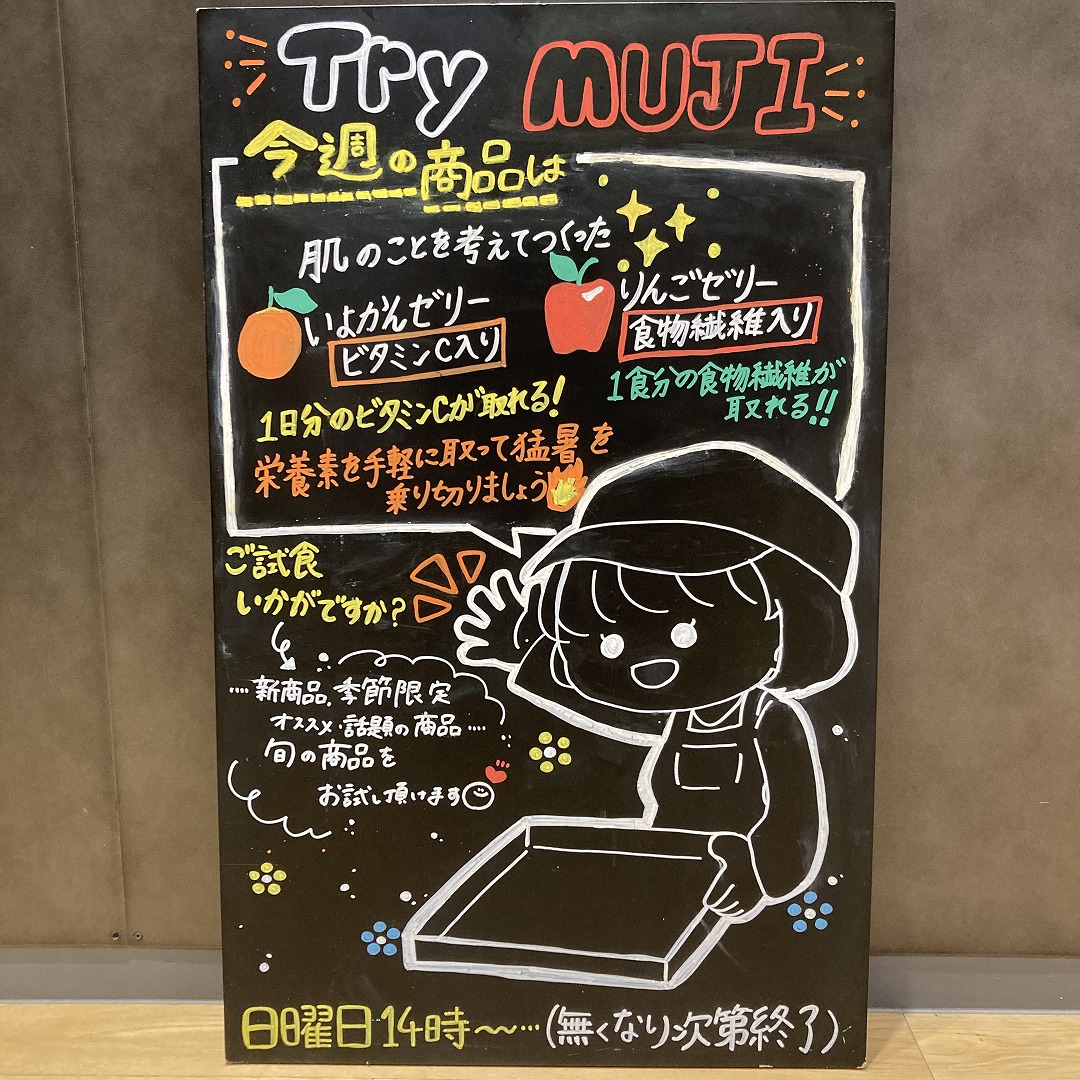 Try MUJI
今週の商品は
肌のことを考えてつくった
いよかんゼリー
ビタミンC入り
りんごゼリー
食物繊維入り
1日分のビタミンCが取れる!
1食分の食物繊維が
取れる!!
栄養素を手軽に取って猛暑を
乗り切りましょう
ご試食
いかがですか?
‥‥新商品、季節限定
オススメ・話題の商品‥‥
旬の商品を
お試し頂けます
日曜日14時〜…(無くなり次第終了)